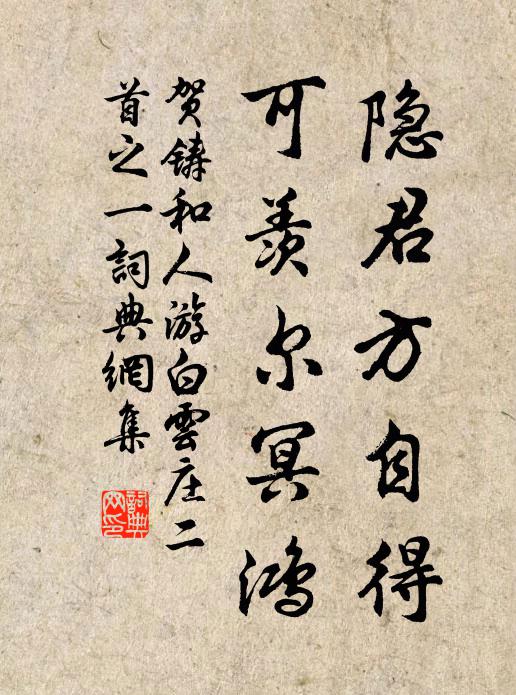 隐君方自得
可羡尔冥鸿
贺铸和人游白雲庄二
首之一詞典網集
詞典
网印